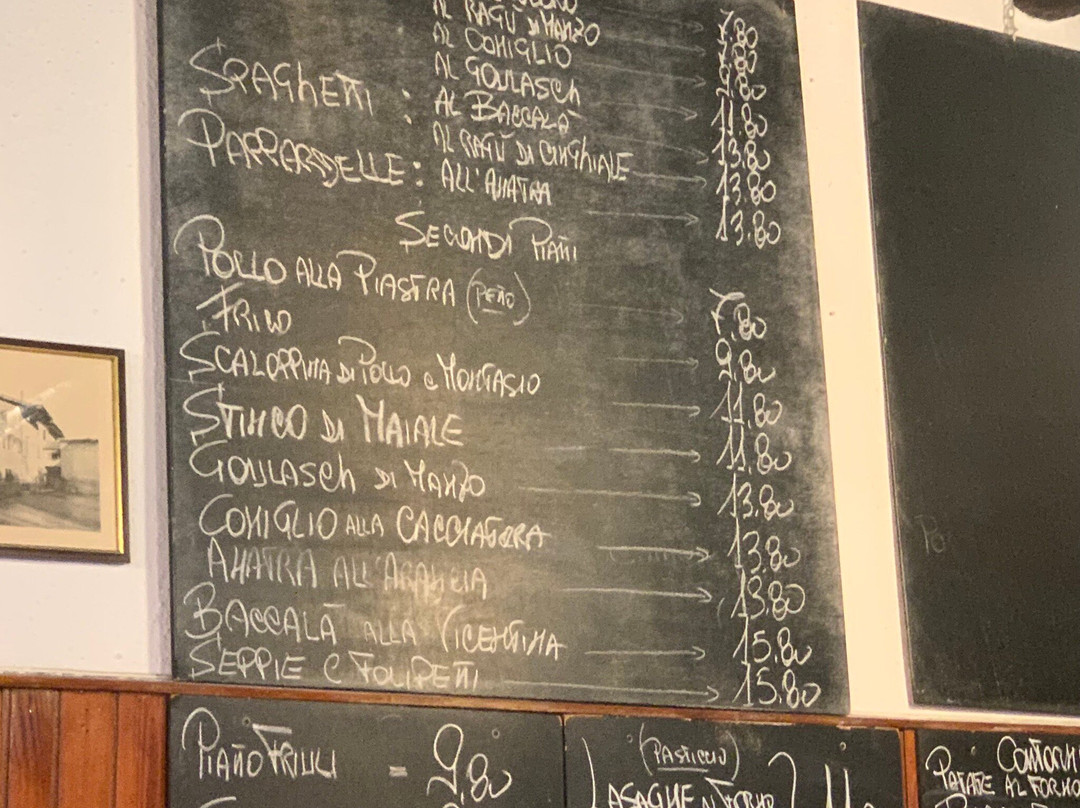 AL RAGÙ DI MANZO 7.80
AL CONIGLIO 7.80
AL GOULASCH 9.80
SPAGHETTI : AL BACCALÀ 11.80
AL RAGÙ DI CINGHIALE 13.80
PAPPARDELLE : ALL'ANATRA 13.80
13.80
SECONDI PIATTI
POLLO ALLA PIASTRA (PETTO) 7.80
FRICO 9.80
SCALOPPINA DI POLLO e MONTASIO 11.80
STINCO DI MAIALE 11.80
GOULASCH DI MANZO 13.80
CONIGLIO ALLA CACCIATORA 13.80
ANATRA ALL'ARANCIA 13.80
BACCALÀ ALLA VICENTINA 15.80
SEPPIE E FOLIPETTI 15.80
PIATTO FRIULI = 9,80
(PASTICCIO)
LASAGNE AL FORNO
CONTORNI
PATATE AL FORNO